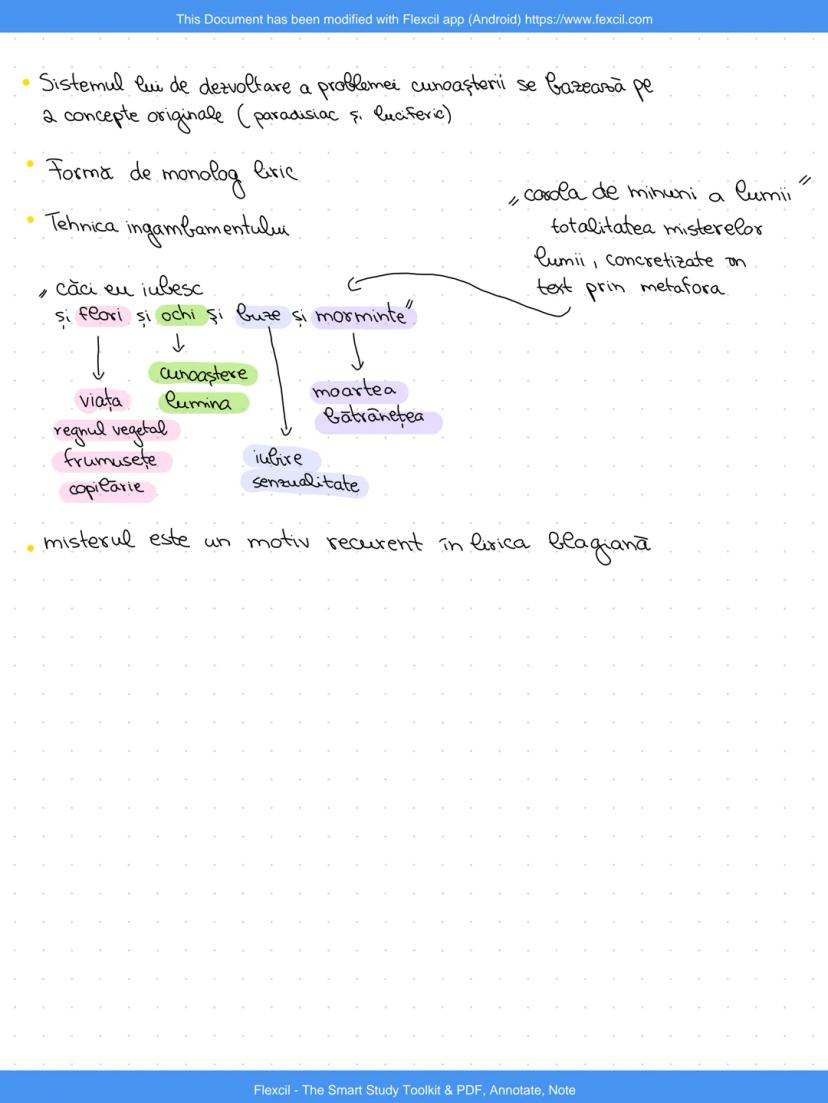 This Document has been modified with Flexcil app (Android) https://www.fexcil.com
• Sistemul lui de dezvoltare a problemei cunoașterii se bazează pe
2 concepte originale (paradisiac și luciferic)
• Formă de monolog liric
• Tehnica ingambamentului
„corola de minuni a lumii”
totalitatea misterelor
lumii, concretizate în
text prin metafora
„căci eu iubesc
și flori și ochi și buze și morminte”
cunoaștere
lumina
viața
regnul vegetal
frumusețe
copilărie
iubire
senzualitate
moartea
bătrânețea
• misterul este un motiv recurent în lirica blagiană
Flexcil - The Smart Study Toolkit & PDF, Annotate, Note